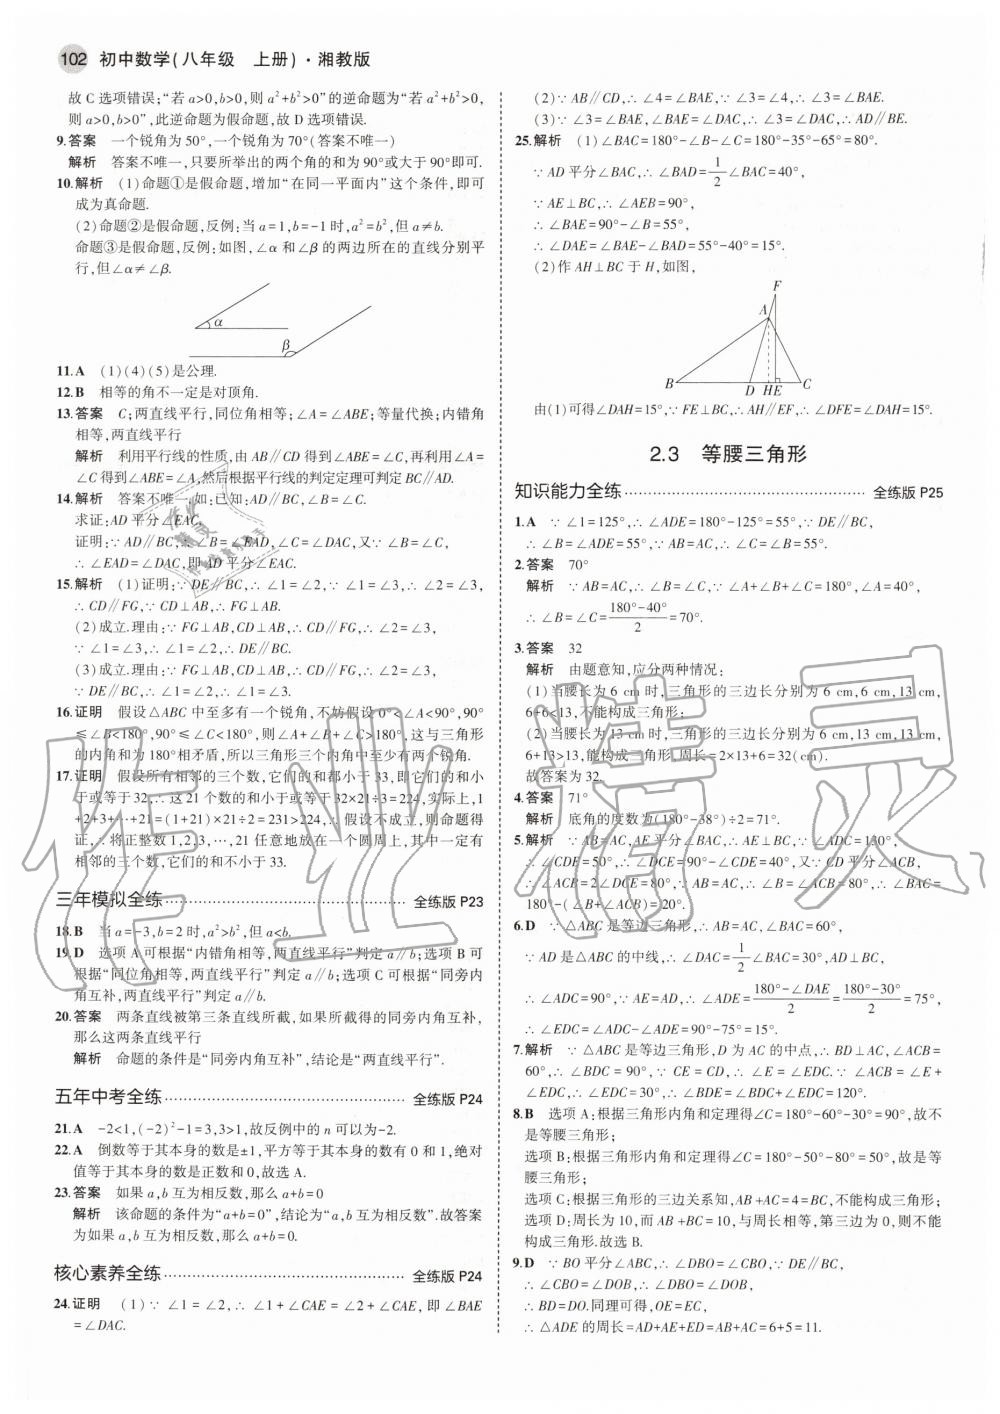 102 初中数学(八年级 上册)·湘教版
故 C 选项错误;“若 a>0,b>0,则 a²+b²>0”的逆命题为“若 a²+b²>0,
则 a>0,b>0”,此逆命题为假命题,故 D 选项错误.
9.答案 一个锐角为 50°,一个锐角为 70°(答案不唯一)
解析 答案不唯一,只要所举出的两个角的和为 90°或大于 90°即可.
10.解析 (1)命题①是假命题,增加“在同一平面内”这个条件,即可
成为真命题.
(2)命题②是假命题,反例:当 a=1,b=-1 时,a²=b²,但 a≠b.
命题③是假命题,反例:如图,∠α 和∠β 的两边所在的直线分别平
行,但∠α≠∠β.
α
β
11.A (1)(4)(5)是公理.
12.B 相等的角不一定是对顶角.
13.答案 C;两直线平行,同位角相等;∠A=∠ABE;等量代换;内错角
相等,两直线平行
解析 利用平行线的性质,由 AB∥CD 得到∠ABE=∠C,再利用∠A=
∠C 得到∠ABE=∠A,然后根据平行线的判定定理可判定 BC∥AD.
14.解析 答案不唯一,如:已知:AD∥BC,∠B=∠C.
求证:AD 平分∠EAC.
证明:∵AD∥BC,∴∠B=∠EAD,∠C=∠DAC,又∵∠B=∠C,
∴∠EAD=∠DAC,即 AD 平分∠EAC.
15.解析 (1)证明:∵DE∥BC,∴∠1=∠2,∵∠1=∠3,∴∠2=∠3,
∴CD∥FG,∵CD⊥AB,∴FG⊥AB.
(2)成立.理由:∵FG⊥AB,CD⊥AB,∴CD∥FG,∴∠2=∠3,
∵∠1=∠3,∴∠1=∠2,∴DE∥BC.
(3)成立.理由:∵FG⊥AB,CD⊥AB,∴CD∥FG,∴∠2=∠3,
∵DE∥BC,∴∠1=∠2,∴∠1=∠3.
16.证明 假设△ABC 中至多有一个锐角,不妨假设 0°<∠A<90°,90°
≤∠B<180°,90°≤∠C<180°,则∠A+∠B+∠C>180°,这与三角形
的内角和为 180°相矛盾,所以三角形三个内角中至少有两个锐角.
17.证明 假设所有相邻的三个数,它们的和都小于 33,即它们的和小
于或等于 32,∴这 21 个数的和小于或等于 32×21÷3=224,实际上,1
+2+3+…+21=(1+21)×21÷2=231>224,∴假设不成立,则命题得
证,∴将正整数 1,2,3,…,21 任意地放在一个圆周上,其中一定有
相邻的三个数,它们的和不小于 33.
三年模拟全练 全练版 P23
18.B 当 a=-3,b=2 时,a²>b²,但 a<b.
19.D 选项 A 可根据“内错角相等,两直线平行”判定 a∥b;选项 B 可
根据“同位角相等,两直线平行”判定 a∥b;选项 C 可根据“同旁内
角互补,两直线平行”判定 a∥b.
20.答案 两条直线被第三条直线所截,如果所截得的同旁内角互补,
那么这两条直线平行
解析 命题的条件是“同旁内角互补”,结论是“两直线平行”.
五年中考全练 全练版 P24
21.A -2<1,(-2)²-1=3,3>1,故反例中的 n 可以为-2.
22.A 倒数等于其本身的数是±1,平方等于其本身的数有 0 和 1,绝对
值等于其本身的数是正数和 0,故选 A.
23.答案 如果 a,b 互为相反数,那么 a+b=0
解析 该命题的条件为“a+b=0”,结论为“a,b 互为相反数”.故答案
为如果 a,b 互为相反数,那么 a+b=0.
核心素养全练 全练版 P24
24.证明 (1)∵∠1=∠2,∴∠1+∠CAE=∠2+∠CAE,即∠BAE
=∠DAC.
(2)∵AB∥CD,∴∠4=∠BAE,∵∠3=∠4,∴∠3=∠BAE.
(3)∵∠3=∠BAE,∠BAE=∠DAC,∴∠3=∠DAC,∴AD∥BE.
25.解析 (1)∠BAC=180°-∠B-∠C=180°-35°-65°=80°.
∵AD 平分∠BAC,∴∠BAD=1/2∠BAC=40°,
∵AE⊥BC,∴∠AEB=90°,
∴∠BAE=90°-∠B=55°,
∴∠DAE=∠BAE-∠BAD=55°-40°=15°.
(2)作 AH⊥BC 于 H,如图,
F
A
B D HE C
由(1)可得∠DAH=15°,∵FE⊥BC,∴AH∥EF,∴∠DFE=∠DAH=15°.
2.3 等腰三角形
知识能力全练 全练版 P25
1.A ∵∠1=125°,∴∠ADE=180°-125°=55°,∵DE∥BC,
∴∠B=∠ADE=55°,∵AB=AC,∴∠C=∠B=55°.
2.答案 70°
解析 ∵AB=AC,∴∠B=∠C,∵∠A+∠B+∠C=180°,∠A=40°,
∴∠B=∠C=(180°-40°)/2=70°.
3.答案 32
解析 由题意知,应分两种情况:
(1)当腰长为 6 cm 时,三角形的三边长分别为 6 cm,6 cm,13 cm,
6+6<13,不能构成三角形;
(2)当腰长为 13 cm 时,三角形的三边长分别为 6 cm,13 cm,13 cm,
6+13>13,能构成三角形.周长=2×13+6=32(cm).
故答案为 32.
4.答案 71°
解析 底角的度数为(180°-38°)÷2=71°.
5.解析 ∵AB=AC,AE 平分∠BAC,∴AE⊥BC,∵∠ADC=130°,
∴∠CDE=50°,∴∠DCE=90°-∠CDE=40°,又∵CD 平分∠ACB,
∴∠ACB=2∠DCE=80°,∵AB=AC,∴∠B=∠ACB=80°,∴∠BAC=
180°-(∠B+∠ACB)=20°.
6.D ∵△ABC 是等边三角形,∴AB=AC,∠BAC=60°,
∵AD 是△ABC 的中线,∴∠DAC=1/2∠BAC=30°,AD⊥BC,
∴∠ADC=90°,∵AE=AD,∴∠ADE=(180°-∠DAE)/2=(180°-30°)/2=75°,
∴∠EDC=∠ADC-∠ADE=90°-75°=15°.
7.解析 ∵△ABC 是等边三角形,D 为 AC 的中点,∴BD⊥AC,∠ACB=
60°,∴∠BDC=90°,∵CE=CD,∴∠E=∠EDC.∵∠ACB=∠E+
∠EDC,∴∠EDC=30°,∴∠BDE=∠BDC+∠EDC=120°.
8.B 选项 A:根据三角形内角和定理得∠C=180°-60°-30°=90°,故不
是等腰三角形;
选项 B:根据三角形内角和定理得∠C=180°-50°-80°=50°,故是等
腰三角形;
选项 C:根据三角形的三边关系知,AB+AC=4=BC,不能构成三角形;
选项 D:周长为 10,而 AB+BC=10,与周长相等,第三边为 0,则不能
构成三角形.故选 B.
9.D ∵BO 平分∠ABC,∴∠DBO=∠CBO,∵DE∥BC,
∴∠CBO=∠DOB,∴∠DBO=∠DOB,
∴BD=DO.同理可得,OE=EC,
∴△ADE 的周长=AD+AE+ED=AB+AC=6+5=11.
作业精灵